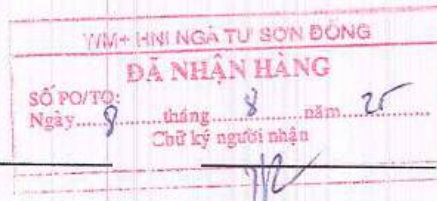 WM+ HNI NGÃ TƯ SƠN ĐỒNG
ĐÃ NHẬN HÀNG
SỐ PO/TO:
Ngày.....8.........tháng.....8.........năm...25............
Chữ ký người nhận